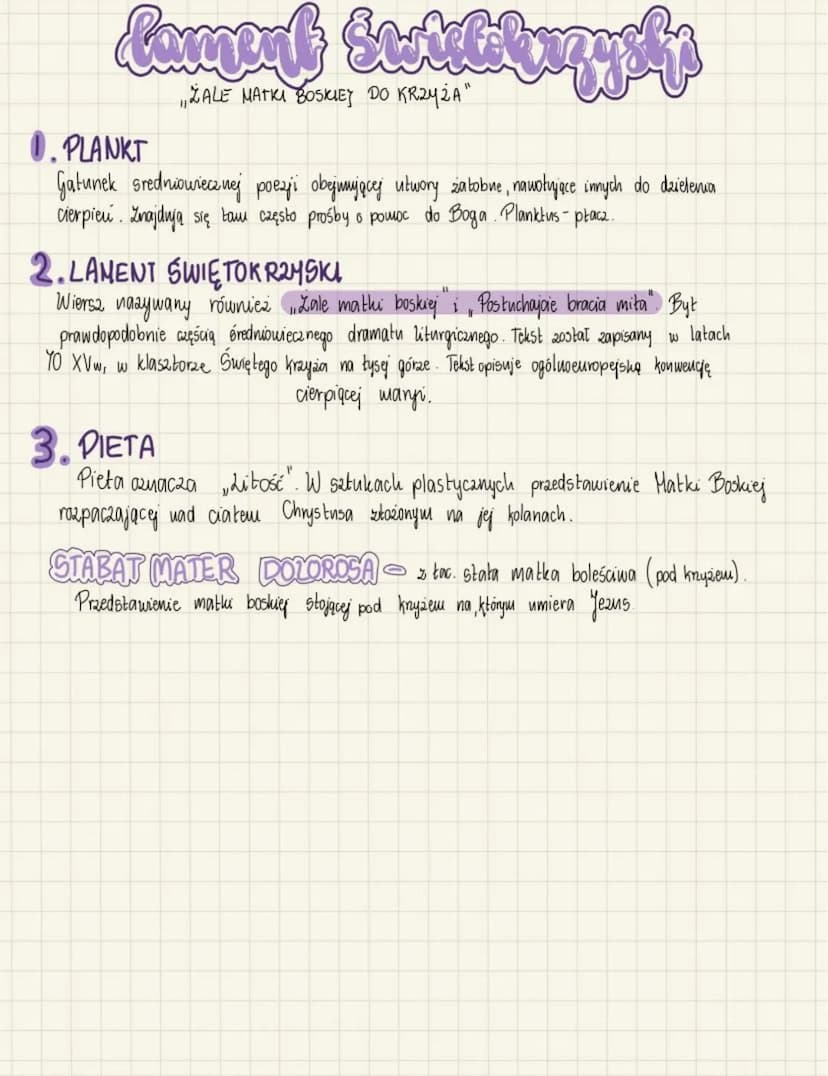 Lament Świętokrzyski
„ŻALE MATKI BOSKIEJ DO KRZYŻA"
1. PLANKT
Gatunek średniowiecznej poezji obejmującej utwory żałobne, nawołujące innych do dzielenia
cierpień. Znajdują się tam często prośby o pomoc do Boga. Planktus - płacz.
2. LAMENT ŚWIĘTOKRZYSKI
Wiersz nazywany również „Żale matki boskiej" i „Posłuchajcie bracia miła". Był
prawdopodobnie częścią średniowiecznego dramatu liturgicznego. Tekst został zapisany w latach
70 XVw, w klasztorze Świętego Krzyża na łysej górze. Tekst opisuje ogólnoeuropejską konwencję
cierpiącej maryi.
3. PIETA
Pieta oznacza „Litość". W sztukach plastycznych przedstawienie Matki Boskiej
rozpaczającej nad ciałem Chrystusa złożonym na jej kolanach.
STABAT MATER DOLOROSA - z łac. stała matka boleściwa (pod krzyżem).
Przedstawienie matki boskiej stojącej pod krzyżem na, którym umiera Jezus.